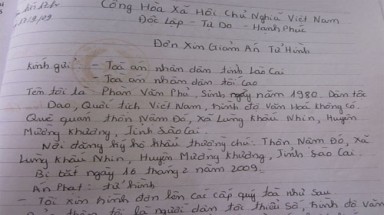 Cộng Hòa Xã Hội Chủ Nghĩa Việt Nam
Độc Lập - Tự Do - Hành Phúc
Đơn Xin Giảm Án Tử Hình
Kính gửi: - Toà án nhân dân tỉnh Lào Cai
- Toà án nhân dân tối cao
Tên tôi là Phàn Văn Phủ, Sinh ngày năm 1980. Dân tộc
Dao, Quốc tịch Việt Nam, trình độ Văn Hoá không có.
Quê quán thôn Nấm Đô, Xã Lùng Khấu Nhin, Huyện
Mường Khương, Tỉnh Lào Cai.
Nơi đăng ký hộ khẩu thường chú: Thôn Nấm Đô, Xã
Lùng Khấu Nhin, Huyện Mường Khương, Tỉnh Lào Cai.
Bị bắt ngày 10 tháng 2 năm 2009.
Án Phạt: tử hình
- Tôi xin trình đơn lên các cấp quý toà như sau
thân tôi là người dân tộc thiểu Số, trình độ Văn